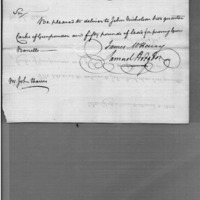 Sir,
Be pleased to deliver to John Nicholson two quarter
Casks of Gunpowder and fifty pounds of lead for proving Gun
Barrells
James McHenry
Samuel Hodgdon
Mr John Harris